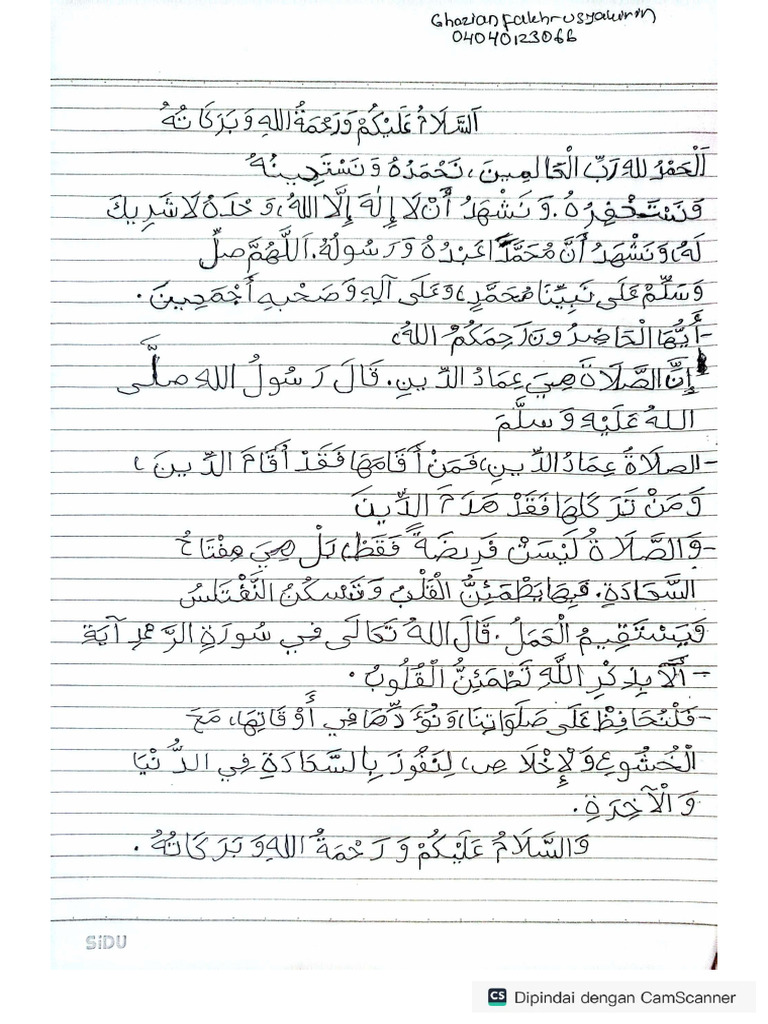 Ghozian fakhrusyakirin
04040123066
اَلسَّلَامُ عَلَيْكُمْ وَرَحْمَةُ اللهِ وَبَرَكَاتُهُ
اَلْحَمْدُ لله رَبِّ الْعَالمِينَ، نَحْمَدُهُ وَنَسْتَعِينُهُ
وَنَسْتَغْفِرُهُ. وَنَشْهَدُ أَنْ لَا إِلٰهَ إِلَّا اللهُ، وَحْدَهُ لَا شَرِيكَ
لَهُ، وَنَشْهَدُ أَنَّ مُحَمَّدًا عَبْدُهُ وَرَسُولُهُ. اَللَّهُمَّ صلِّ
وَسَلِّمْ عَلَى نَبِيِّنَا مُحَمَّدٍ، وَعَلَى آلِهِ وَصَحْبِهِ أَجْمَعِينَ.
- أَيُّهَا الْحَاضِرُونَ رَحِمَكُمُ اللهُ،
إِنَّ الصَّلَاةَ هِيَ عِمَادُ الدِّينِ. قَالَ رَسُولُ اللهِ صلَّى
اللهُ عَلَيْهِ وَسلَّمَ
- الصلَاةُ عِمَادُ الدِّينِ، فَمَنْ أَقَامَهَا فَقَدْ أَقَامَ الدِّينَ،
وَمَنْ تَرَكَهَا فَقَدْ هَدَمَ الدِّينَ
- وَالصَّلَاةُ لَيْسَتْ فَرِيضَةً فَقَطْ، بَلْ هِيَ مِفْتَاحُ
السَّعَادَةِ. فِيهَا يَطْمَئِنُّ الْقَلْبُ وَتَسْكُنُ
وَيَسْتَقِيمُ الْعَمَلُ. قَالَ اللهُ تَعَالَى فِي سُورَةِ الرَّعْدِ آيَة
- أَلَا بِذِكْرِ اللَّهِ تَطْمَئِنُّ الْقُلُوبُ.
- فَلْنُحَافِظْ عَلَى صَلَوَاتِنَا، وَنُؤَدِّهَا فِي أَوْقَاتِهَا، مَعَ
الْخُشُوعِ وَالْإِخْلَاصِ، لِنَفُوزَ بِالسَّعَادَةِ فِي الدُّنْيَا
وَالْآخِرَةِ.
وَالسَّلَامُ عَلَيْكُمْ وَرَحْمَةُ اللهِ وَبَرَكَاتُهُ.
SiDU
CS Dipindai dengan CamScanner